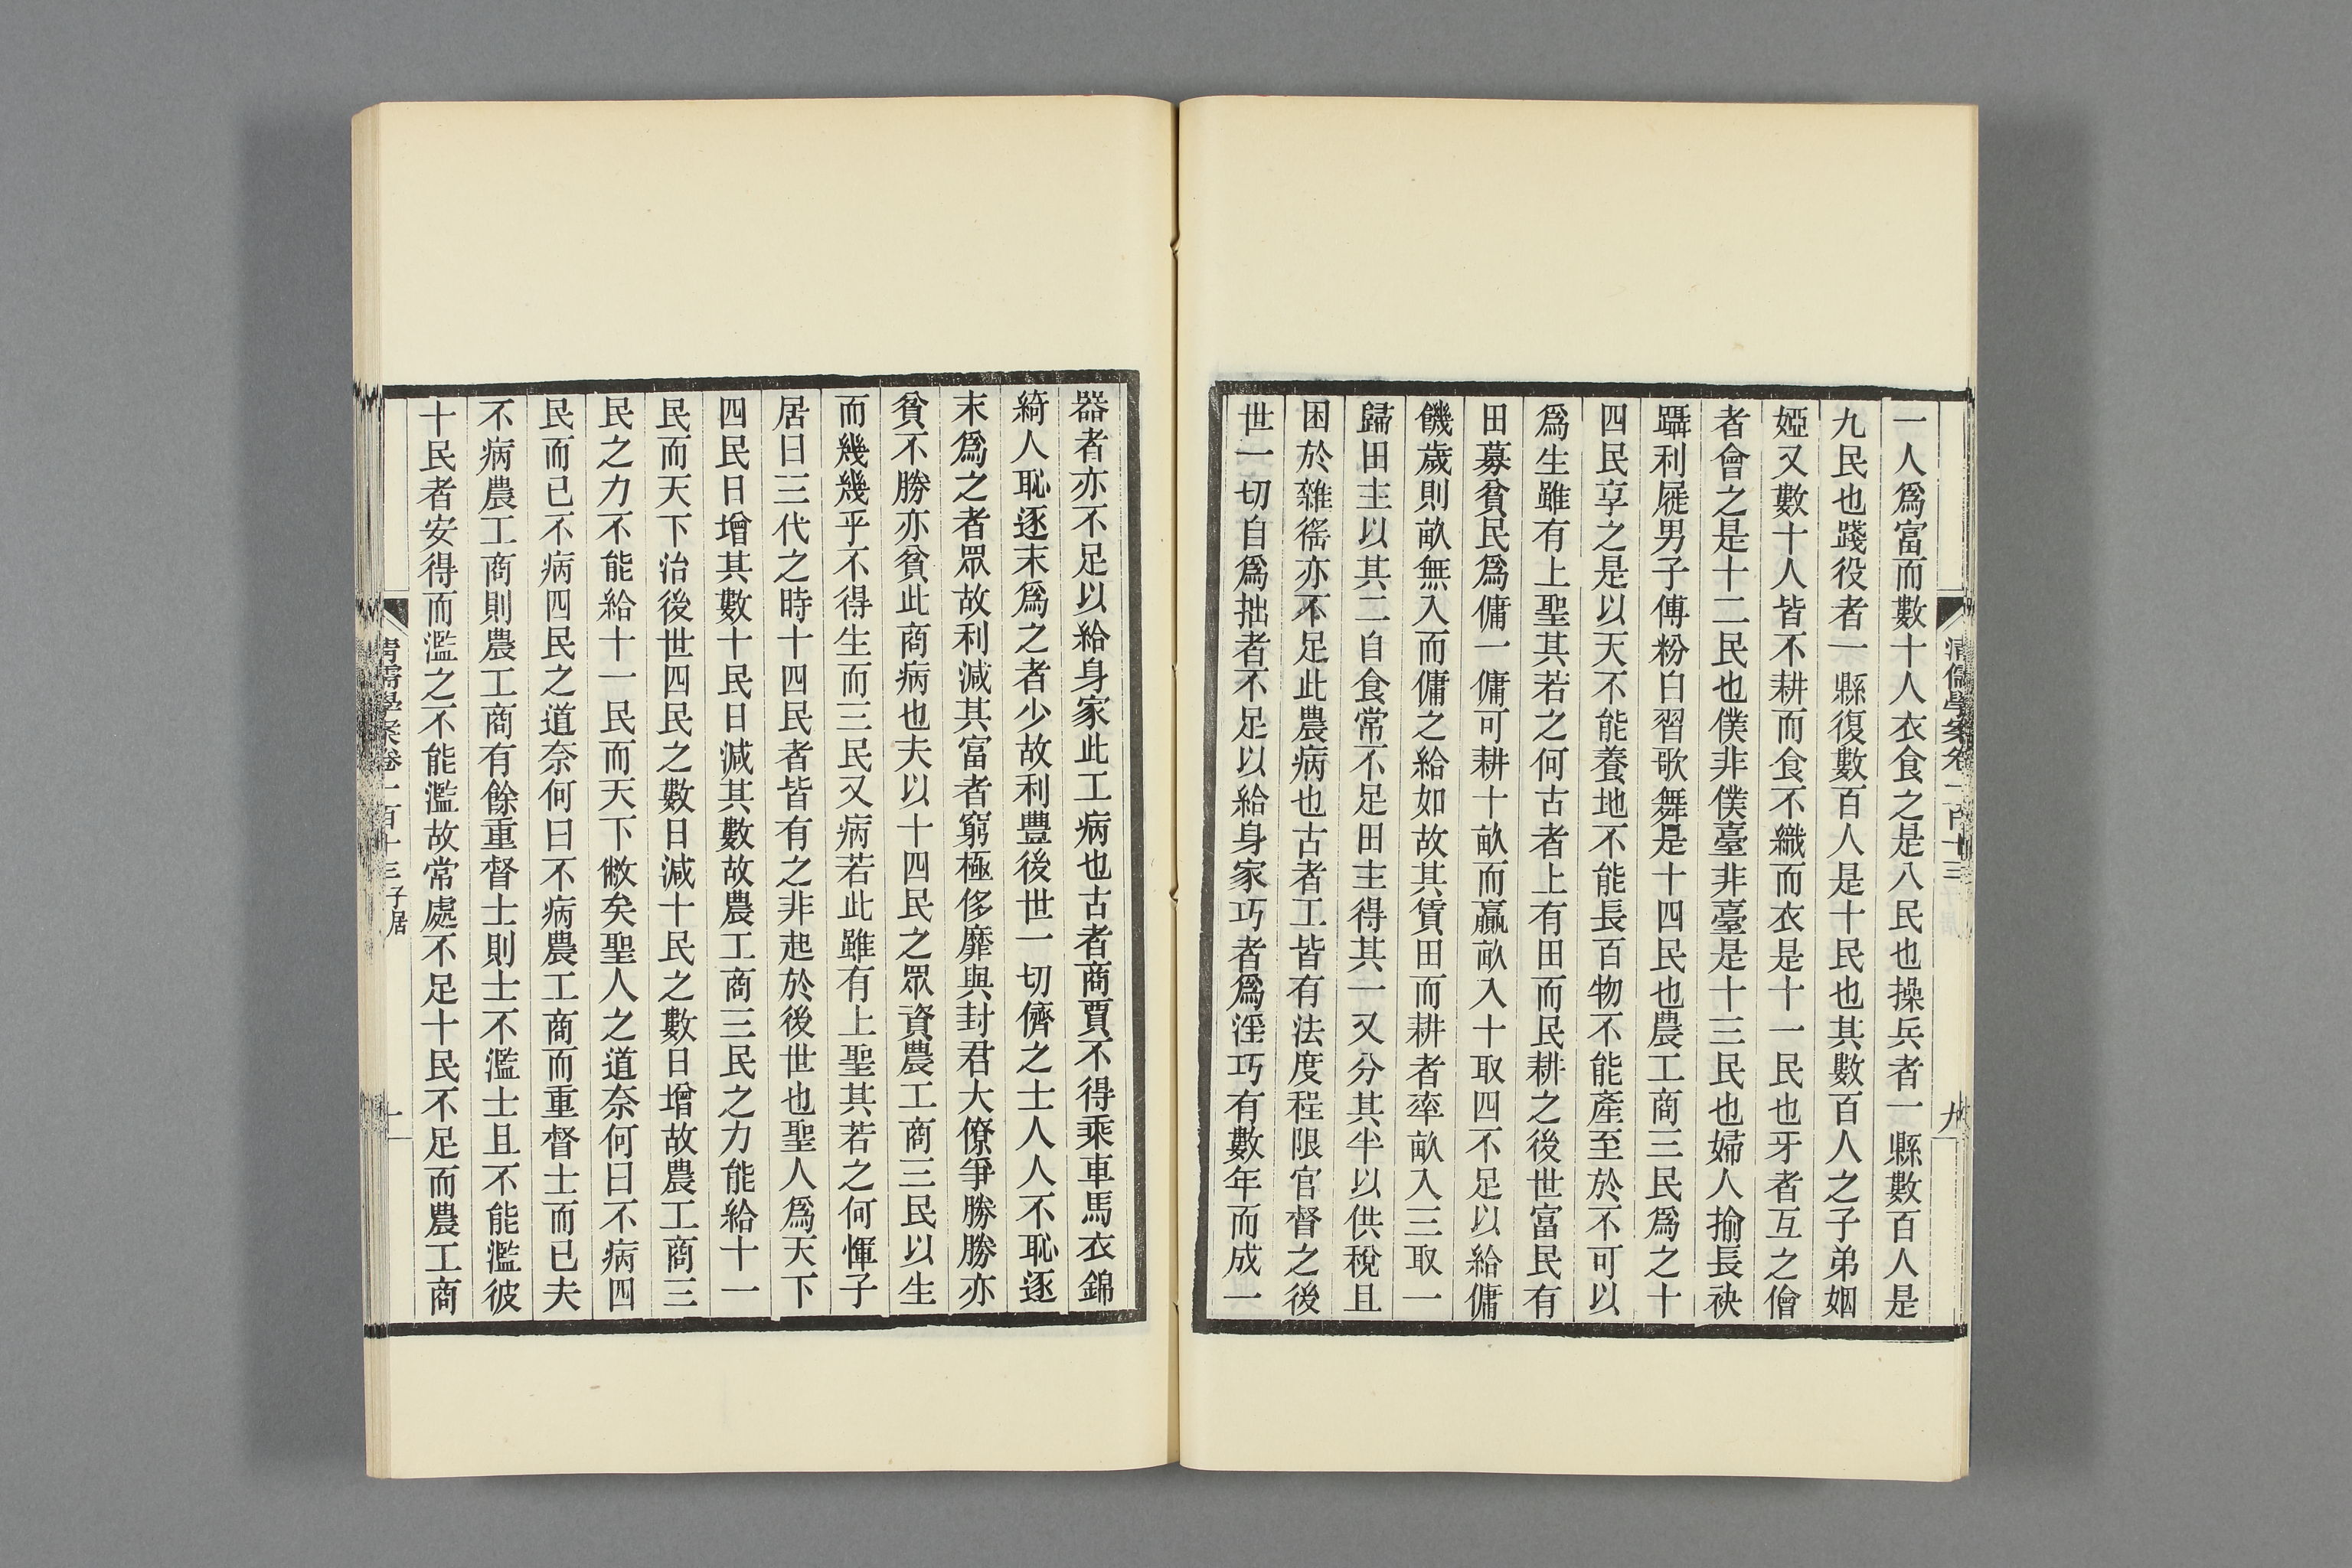 清儒學案卷一百十三
九
一人爲富而數十人衣食之是八民也操兵者一縣數百人是
九民也踐役者一縣復數百人是十民也其數百人之子弟姻
婭又數十人皆不耕而食不織而衣是十一民也牙者互之儈
者會之是十二民也僕非僕臺非臺是十三民也婦人揄長袂
躡利屣男子傅粉白習歌舞是十四民也農工商三民爲之十
四民享之是以天不能養地不能長百物不能產至於不可以
爲生雖有上聖其若之何古者上有田而民耕之後世富民有
田募貧民爲傭一傭可耕十畝而贏畝入十取四不足以給傭
饑歲則畝無入而傭之給如故其賃田而耕者率畝入三取一
歸田主以其二自食常不足田主得其一又分其半以供稅且
困於雜徭亦不足此農病也古者工皆有法度程限官督之後
世一切自爲拙者不足以給身家巧者爲淫巧有數年而成一
器者亦不足以給身家此工病也古者商賈不得乘車馬衣錦
綺人恥逐末爲之者少故利豐後世一切儕之士人人不恥逐
末爲之者眾故利減其富者窮極侈靡與封君大僚爭勝勝亦
貧不勝亦貧此商病也夫以十四民之眾資農工商三民以生
而幾幾乎不得生而三民又病若此雖有上聖其若之何惲子
居曰三代之時十四民者皆有之非起於後世也聖人爲天下
四民日增其數十民日減其數故農工商三民之力能給十一
民而天下治後世四民之數日減十民之數日增故農工商三
民之力不能給十一民而天下敝矣聖人之道奈何曰不病四
民而已不病四民之道奈何曰不病農工商而重督士而已夫
不病農工商則農工商有餘重督士則士不濫士且不能濫彼
十民者安得而濫之不能濫故常處不足十民不足而農工商
清儒學案卷一百十三 子居